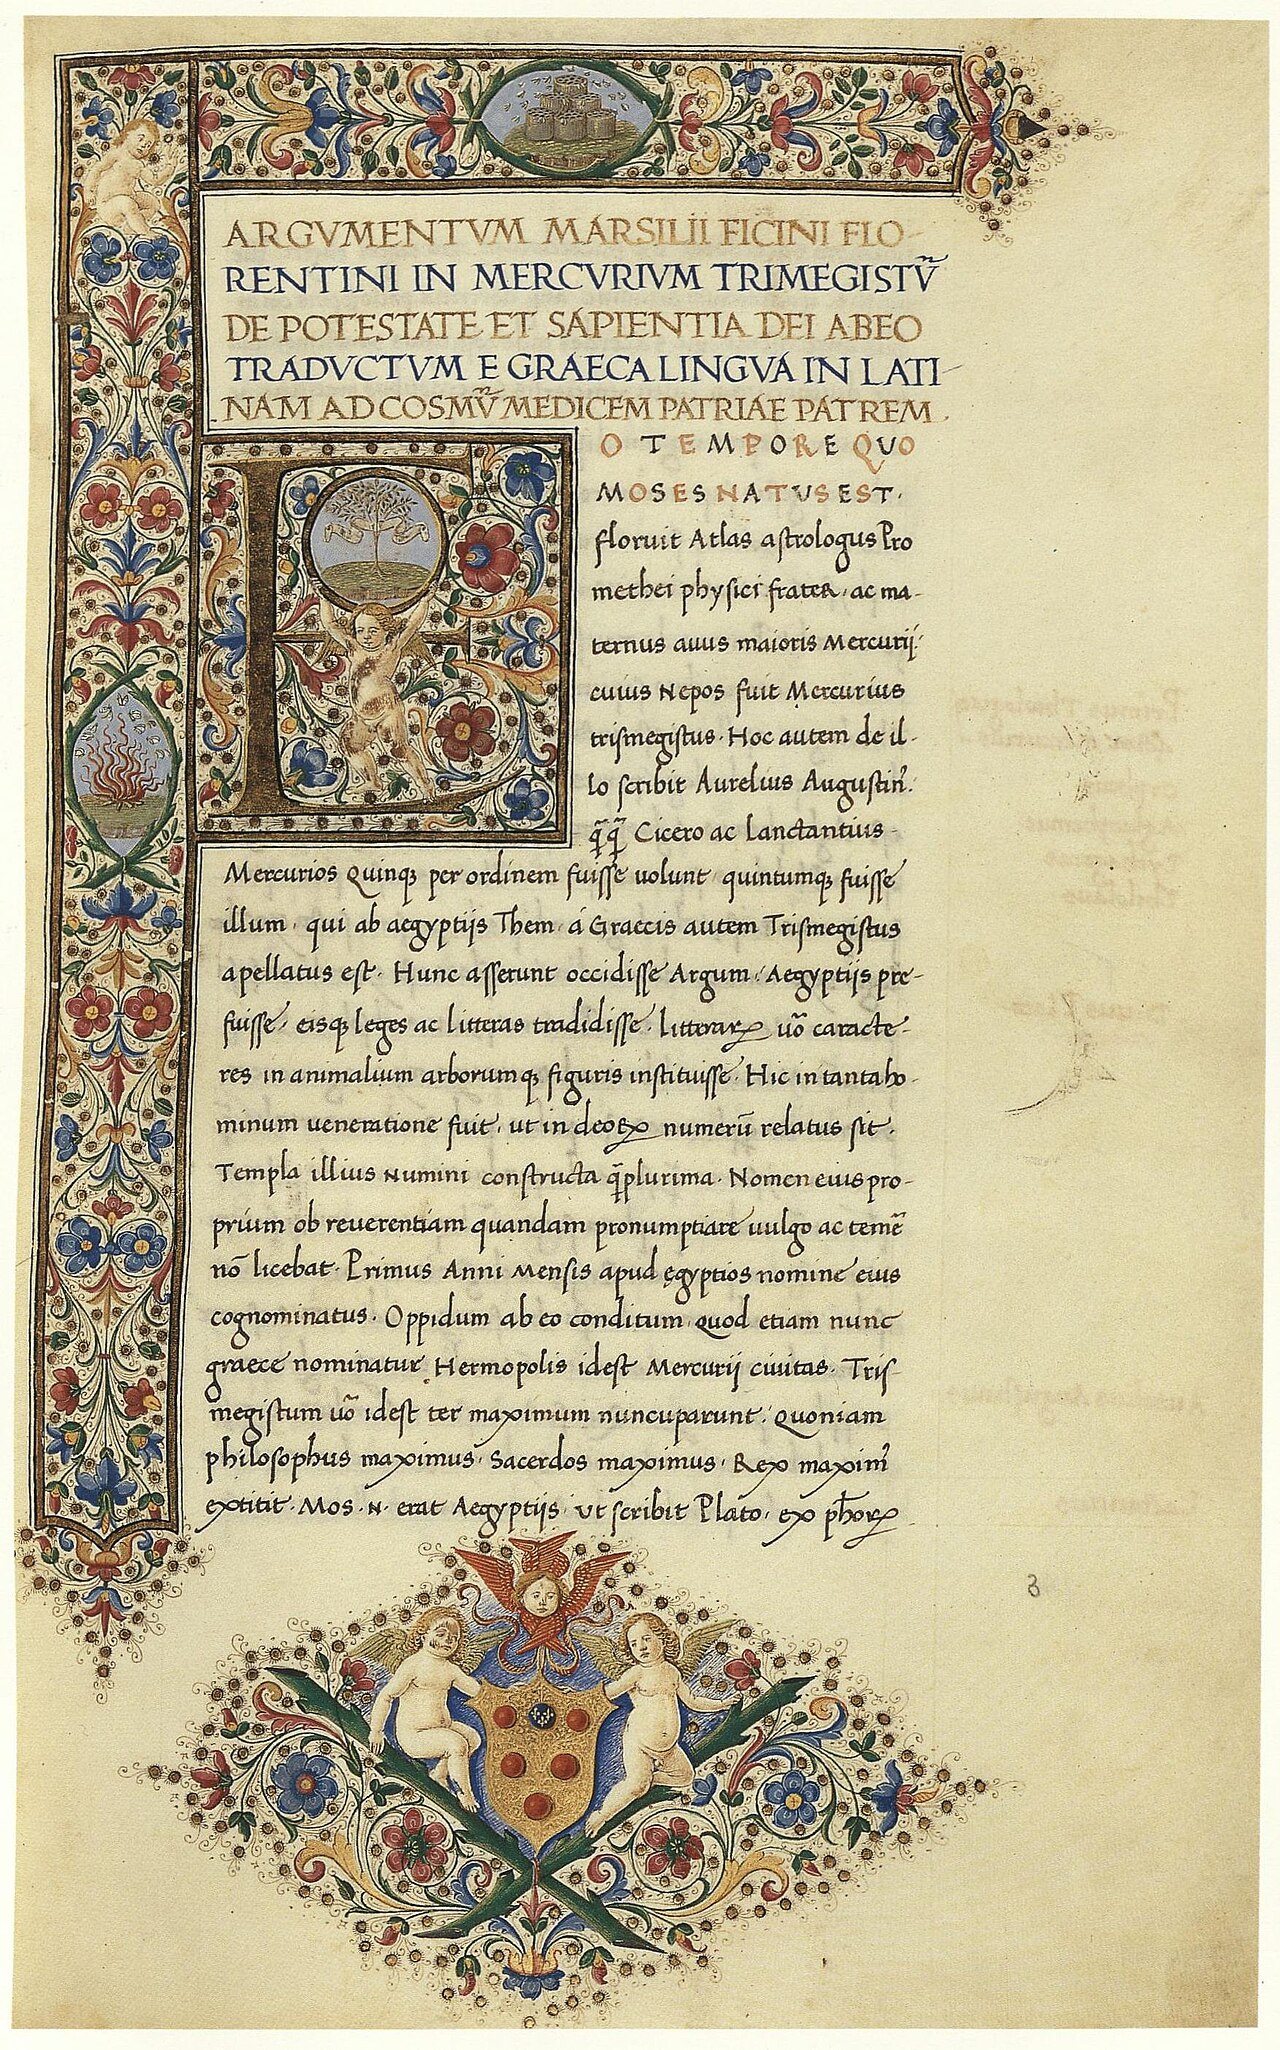 ARGVMENTVM MARSILII FICINI FLO-
RENTINI IN MERCVRIVM TRIMEGISTṼ
DE POTESTATE ET SAPIENTIA DEI AB EO
TRADVCTVM E GRAECA LINGVA IN LATI-
NAM AD COSMṼ MEDICEM PATRIAE PATREM.
EO TEMPORE QUO
MOSES NATUS EST.
floruit Atlas astrologus Pro
methei physici frater, ac ma-
ternus auus maioris Mercurij:
cuius Nepos fuit Mercurius
trismegistus. Hoc autem de il-
lo scribit Aurelius Augustin᾽.
q̃q̃ Cicero ac Lanctantius
Mercurios Quinq; per ordinem fuisse uolunt, quintumq; fuisse
illum, qui ab aegyptijs Them, á Graecis autem Trismegistus
apellatus est. Hunc asserunt occidisse Argum, Aegyptijs pre-
fuisse, eisq; leges ac litteras tradidisse. Litterarꝝ uõ caracte-
res in animalium arborumq; figuris instituisse. Hic in tanta ho-
minum ueneratione fuit, ut in deorꝝ numerũ relatus sit.
Templa illius Numini constructa q̃plurima. Nomen eius pro-
prium ob reuerentiam quandam pronumptiare uulgo ac temẽ
nõ licebat. Primus Anni Mensis apud ęgyptios nomine eius
cognominatus. Oppidum ab eo conditum, quod etiam nunc
graece nominatur Hermopolis idest Mercurij ciuitas. Tris-
megistum uõ idest ter maximum nuncuparunt. Quoniam
philosophus maximus. Sacerdos maximus. Rex maxim᾽
extitit. Mos. N. erat Aegyptijs, ut scribit Plato, ex ph̃orꝝ
3